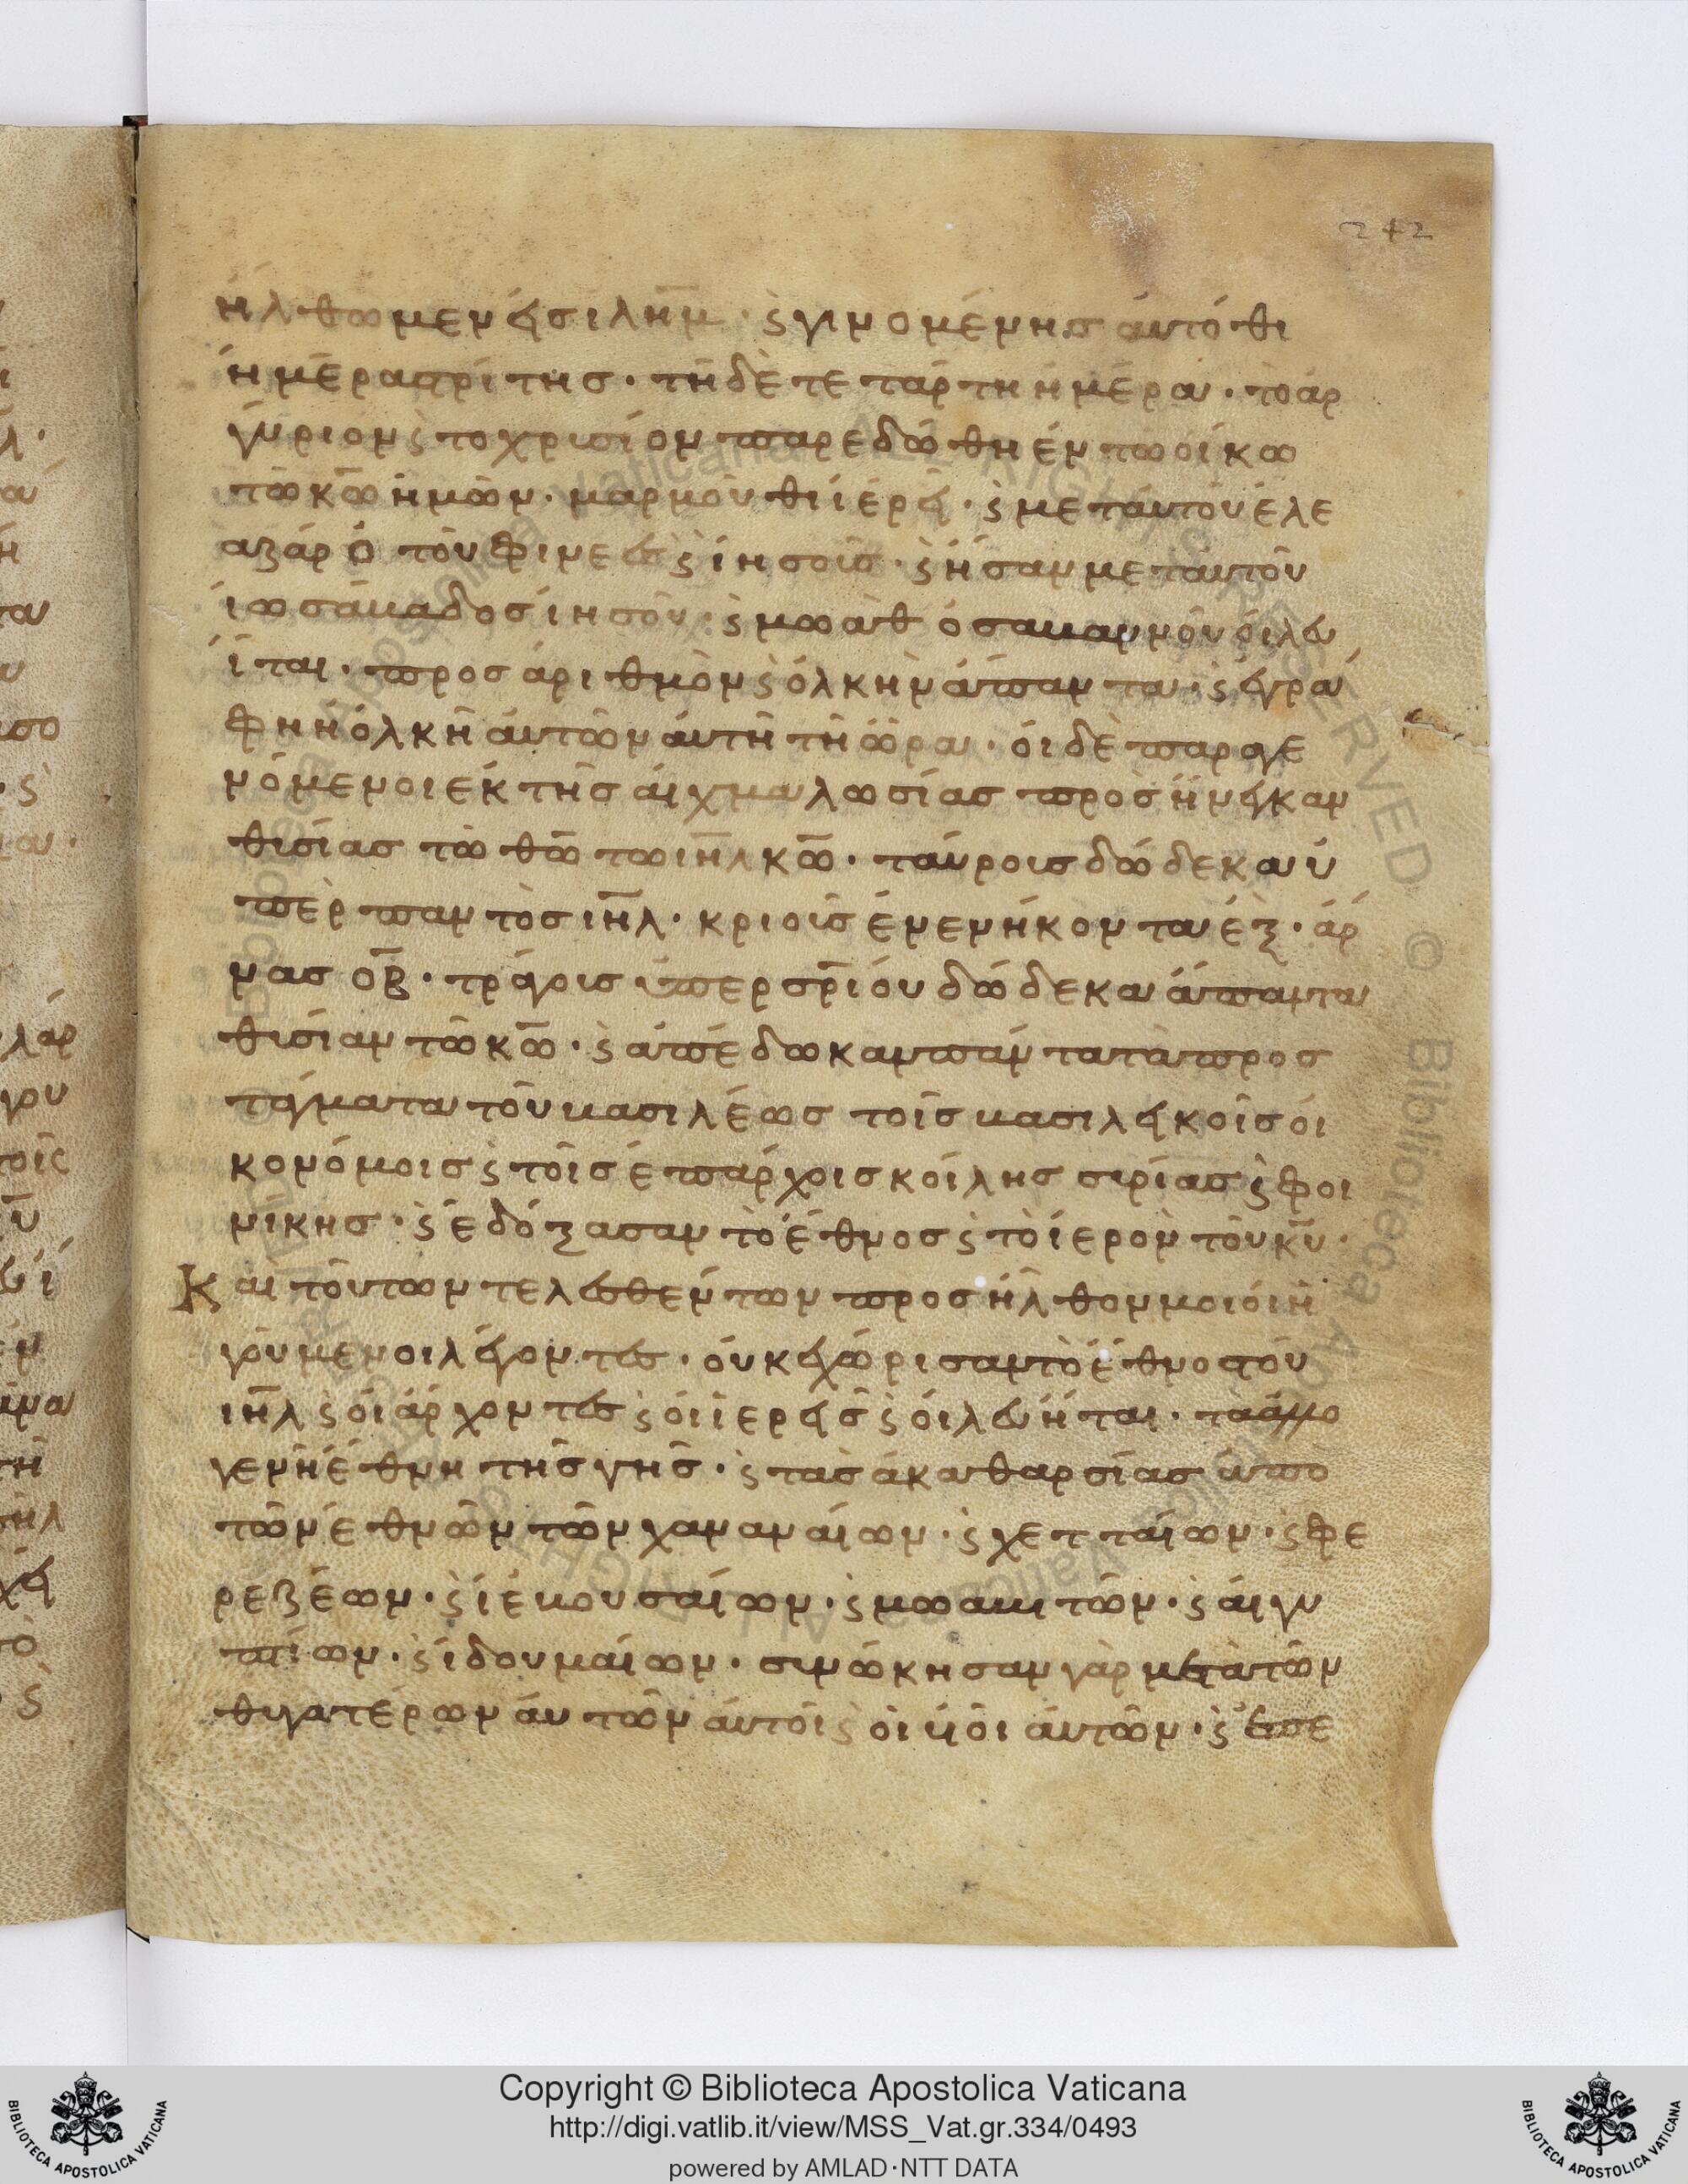 242
ἤλθωμεν εἰσ ιλη̅μ · ϛ γινομένησ αυτόθι
ἡμέρασ τρίτησ · τῆ δὲ τετάρτη ἡμέρα · τὸ ἀρ
γύριον ϛ το χρυσίον παρεδώθη ἐν τω οίκω
τῶ κ̅ω̅ ἡμῶν · μαρμοὺθι ἱερεῖ · ϛ μετ αυτοῦ ἐλε
αζάρ ὁ τοῦ φινεὲσ ϛ ἰησοῦσ · ϛ ἦσαν μετ αυτοῦ
ἰωσάβαδοσ ἰησοῦ · ϛ μωὰθ ὁ σαβαννοῦ ὁι λευ
ῖται · προσ ἀριθμὸν ϛ ὁλκὴν ἅπαντα · ϛ ἐγρά
φη ἡ ὁλκῆ αυτῶν αυτῆ τῆ ὥρα · ὁι δὲ παραγε
νόμενοι εκ τῆσ αἰχμαλωσίασ προσήνεγκαν
θυσίασ τῶ θ̅ω̅ τω ιη̅λ κ̅ω̅ · ταύρουσ δώδεκα ὑ
πὲρ παντὸσ ιη̅λ · κριοὺσ ἐνενήκοντα ἑξ · ἀρ
νασ ο̅β̅ · τράγουσ ὑπερ σρ̅ιόυ δώδεκα ἅπαντα
θυσίαν τῶ κ̅ω̅ · ϛ ἀπέδωκαν πάντα τὰ προσ
τάγματα τοῦ βασιλέωσ τοῖσ βασιλεικοῖσ ὀι
κονόμοισ ϛ τοῖσ ἐπάρχοισ κοίλησ συρίασ ϛ φοι
νίκησ · ϛ ἐδόξασαν τὸ ἔθνοσ ϛ τὸ ἱερὸν τοῦ κ̅υ̅ ·
Και τούτων τελεσθέντων προσῆλθον μοι ὁι ἡ
γούμενοι λέγοντεσ · ὀυκ εχώρισαν τὸ ἔθνοσ τοῦ
ιη̅λ ϛ ὁι ἄρχοντεσ ϛ ὁι ἱερεῖσ ϛ ὁι λευῆται · τὰ ἀλλο
γενῆ ἔθνη τῆσ γῆσ · ϛ τὰσ ἀκαθαρσίασ ἀπὸ
τῶν ἐθνῶν τῶν χαναναίων · ϛ χετταίων · ϛ φε
ρεζέων · ϛ ἰεβουσαίων · ϛ μωαβιτῶν · ϛ αιγυ
πτίων · ϛ ἰδουμαίων · συνώκησαν γὰρ μετὰ τῶν
θυγατέρων ἀυτῶν ἀυτοὶ ϛ ὁι υἱοὶ ἀυτῶν · ϛ ἐπε
Copyright © Biblioteca Apostolica Vaticana
http://digi.vatlib.it/view/MSS_Vat.gr.334/0493
powered by AMLAD·NTT DATA
BIBLIOTECA APOSTOLICA VATICANA
BIBLIOTECA APOSTOLICA VATICANA